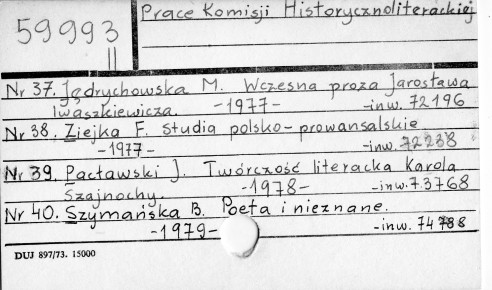 59993
II
Prace Komisji Historycznoliterackiej
Nr 37. Jędrychowska M. Wczesna proza Jarosława
Iwaszkiewicza. -1977- -inw. 72196
Nr 38. Ziejka F. Studia polsko-prowansalskie
-1977- -inw. 72238
Nr 39. Pacławski J. Twórczość literacka Karola
Szajnochy. -1978- -inw. 73768
Nr 40. Szymańska B. Poeta i nieznane.
-1979- -inw. 74788
DUJ 897/73. 15000